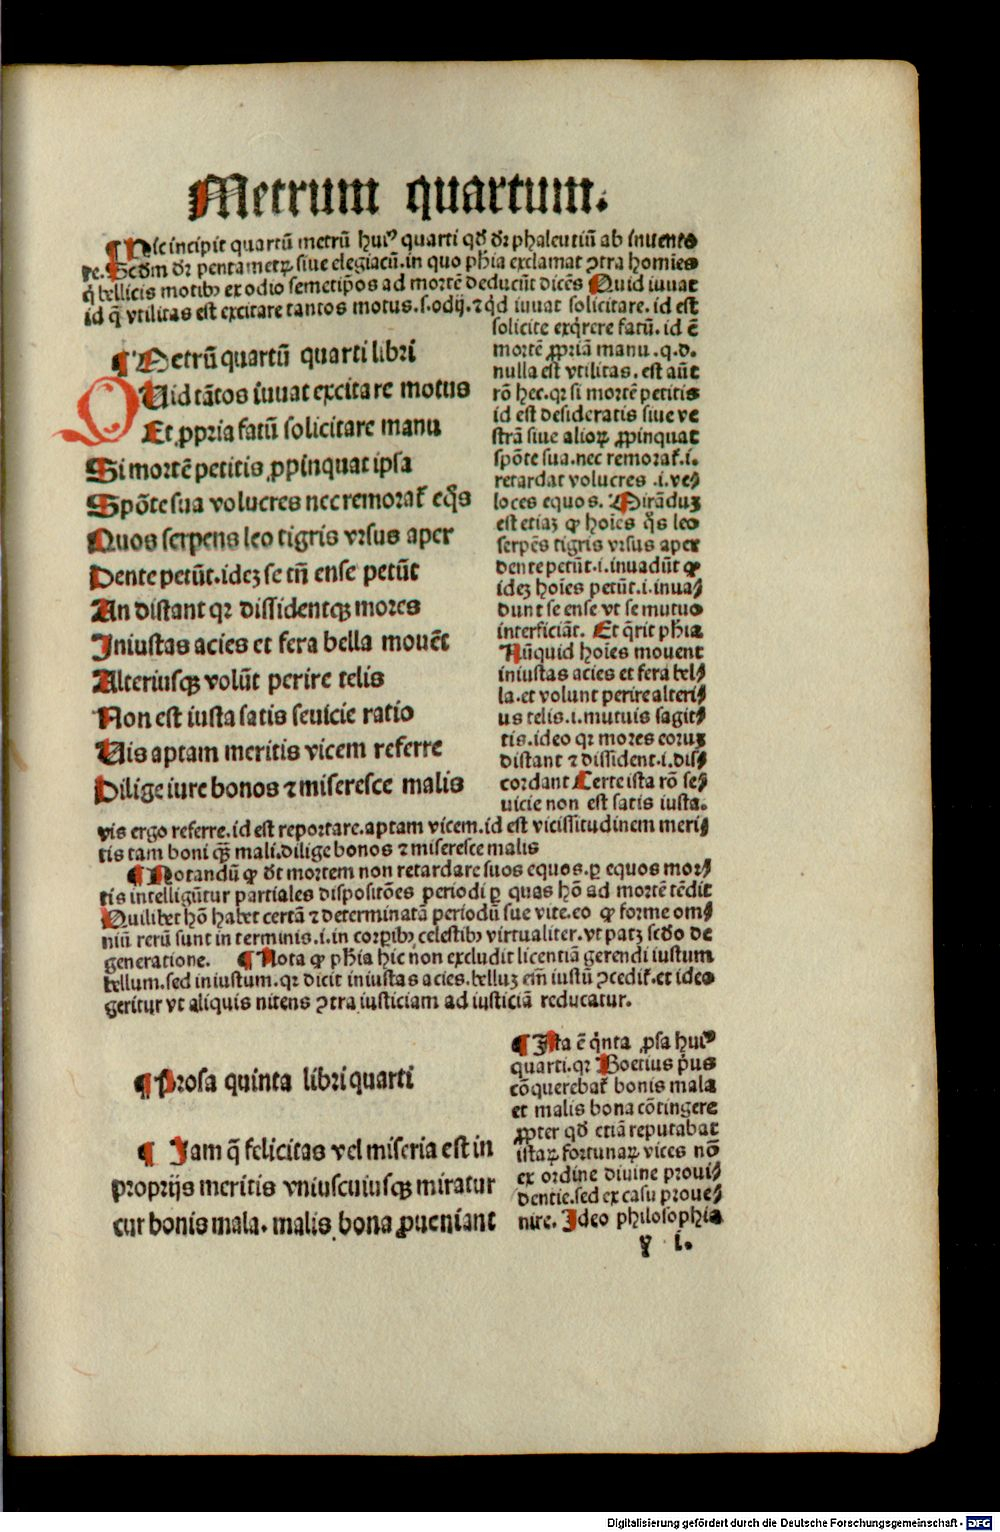 Metrum quartum.
¶ Hic incipit quartū metrū huiꝰ quarti qd̄ dr̄ phaleutiū ab inuento
re. Scd̄m dr̄ pentametꝝ siue elegiacū. in quo phīa exclamat ꝯtra homīes
q̄ bellicis motibꝫ ex odio semetip̄os ad mortē deducūt dicēs Quid iuuat
id q̄ vtilitas est excitare tantos motus. s. odij. ⁊ qd iuuat solicitare. id est
solicite exq̄rere fatū. id ē
mortē ꝓpriā manu. q. d.
nulla est vtilitas. est aūt
rō hec. qꝛ si mortē petitis
id est desideratis siue ve
strā siue alioꝝ ꝓpinquat
spōte sua. nec remorat̄. i.
retardat volucres .i. ve⸗
loces equos. Mirāduꝫ
est etiaꝫ ꝙ hoīes q̄s leo
serpēs tigris vrsus aper
dente petūt. i. inuadūt ꝙ
ideꝫ hoīes petūt. i. inua⸗
dunt se ense vt se mutuo
interficiāt. Et q̄rit phīa
Nūquid hoīes mouent
iniustas acies et fera bel⸗
la. et volunt perire alteri⸗
us telis. i. mutuis sagit⸗
tis. ideo qꝛ mores eoruꝫ
distant ⁊ dissident. i. dis⸗
cordant Certe ista rō se⸗
uicie non est satis iusta.
¶ Metrū quartū quarti libri
QVid tātos iuuat excitare motus
Et ꝓpria fatū solicitare manu
Si mortē petitis ꝓpinquat ipsa
Spōte sua volucres nec remorat̄ eq̄s
Quos serpens leo tigris vrsus aper
Dente petūt. ideꝫ se tn̄ ense petūt
An distant qꝛ dissidentqꝫ mores
Iniustas acies et fera bella mouēt
Alteriusqꝫ volūt perire telis
Non est iusta satis seuicie ratio
Uis aptam meritis vicem referre
Dilige iure bonos ⁊ miseresce malis
vis ergo referre. id est reportare. aptam vicem. id est vicissitudinem meri⸗
tis tam boni qꝫ̄ mali. dilige bonos ⁊ miseresce malis
¶ Notandū ꝙ dt̄ mortem non retardare suos equos. ꝑ equos mor⸗
tis intelligūtur partiales dispositōes periodi ꝑ quas hō ad mortē tēdit
Quilibet hō habet certā ⁊ determinatā periodū sue vite. eo ꝙ forme om⸗
niū rerū sunt in terminis. i. in corꝑibꝫ celestibꝫ virtualiter. vt patꝫ scd̄o de
generatione. ¶ Nota ꝙ phīa hic non excludit licentiā gerendi iustum
bellum. sed iniustum. qꝛ dicit iniustas acies. belluꝫ em̄ iustū ꝯcedit̄. et ideo
geritur vt aliquis nitens ꝯtra iusticiam ad iusticiā reducatur.
¶ Prosa quinta libri quarti
¶ Iam q̄ felicitas vel miseria est in
proprijs meritis vniuscuiusqꝫ miratur
cur bonis mala. malis bona ꝓueniant
¶ Ista ē q̄nta ꝓsa huiꝰ
quarti. qꝛ Boetius p̄us
cōquerebat̄ bonis mala
et malis bona cōtingere
ꝓpter qd̄ etiā reputabat
istaꝝ fortunaꝝ vices nō
ex ordine diuine proui⸗
dentie. sed ex casu proue⸗
nire. Ideo philosophia
y i.
Digitalisierung gefördert durch die Deutsche Forschungsgemeinschaft - DFG